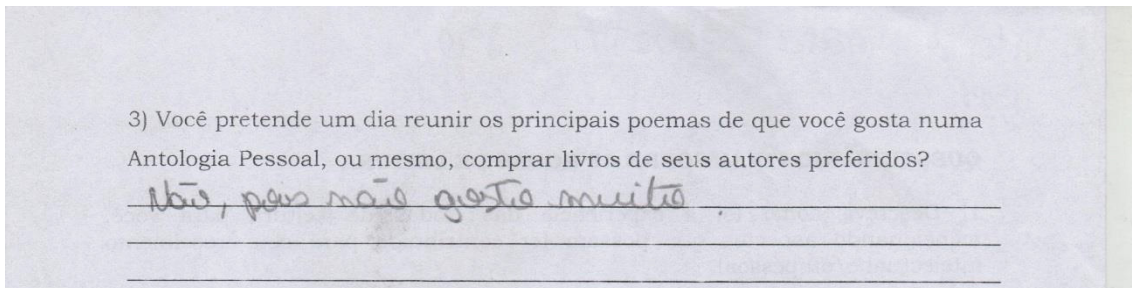 3) Você pretende um dia reunir os principais poemas de que você gosta numa
Antologia Pessoal, ou mesmo, comprar livros de seus autores preferidos?
Não, pois não gosto muito.